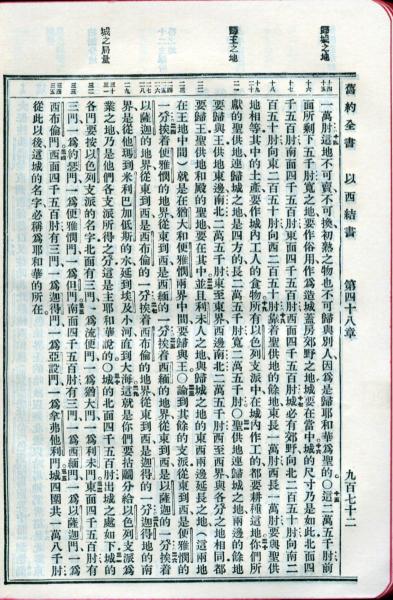 舊約全書　以西結書　第四十八章　九百七十二
歸城之地
歸王之地
城之局量
一萬肘這地不可賣不可換初熟之物也不可歸與別人因爲是歸耶和華爲聖的○這二萬五千肘前
面所剩下五千肘寬之地要作俗用作爲造城蓋房郊野之地城要在當中城的尺寸乃是如此北面四
千五百肘南面四千五百肘東面四千五百肘西面四千五百肘城必有郊野向北二百五十肘向南二
百五十肘向東二百五十肘向西二百五十肘靠着聖供地的餘地東長一萬肘西長一萬肘要與聖供
地相等其中的土產要作城內工人的食物所有以色列支派中在城內作工的都要耕種這地你們所
獻的聖供地連歸城之地是四方的長二萬五千肘寬二萬五千肘○聖供地連歸城之地兩邊的餘地
要歸與王供地東邊南北二萬五千肘東至東界西邊南北二萬五千肘西至西界與各分之地相同都
要歸王聖供地和殿的聖地要在其中並且利未人之地與歸城之地的東西兩邊延長之地（這兩地
在王地中間）就是在猶大和便雅憫兩界中間要歸與王○論到其餘的支派從東到西是便雅憫的
一分挨着便雅憫的地界從東到西是西緬的一分挨着西緬的地界從東到西是以薩迦的一分挨着
以薩迦的地界從東到西是西布倫的一分挨着西布倫的地界從東到西是迦得的一分迦得地的南
界是從他瑪到米利巴加低斯的水延到埃及小河直到大海這就是你們要拈鬮分給以色列支派爲
業之地乃是他們各支派所得之分這是主耶和華說的○城的北面四千五百肘出城之處如下城的
各門要按以色列支派的名字北面有三門一爲流便門一爲猶大門一爲利未門東面四千五百肘有
三門一爲約瑟門一爲便雅憫門一爲但門南面四千五百肘有三門一爲西緬門一爲以薩迦門一爲
西布倫門西面四千五百肘有三門一爲迦得門一爲亞設門一爲拿弗他利門城四圍共一萬八千肘
從此以後這城的名字必稱爲耶和華的所在